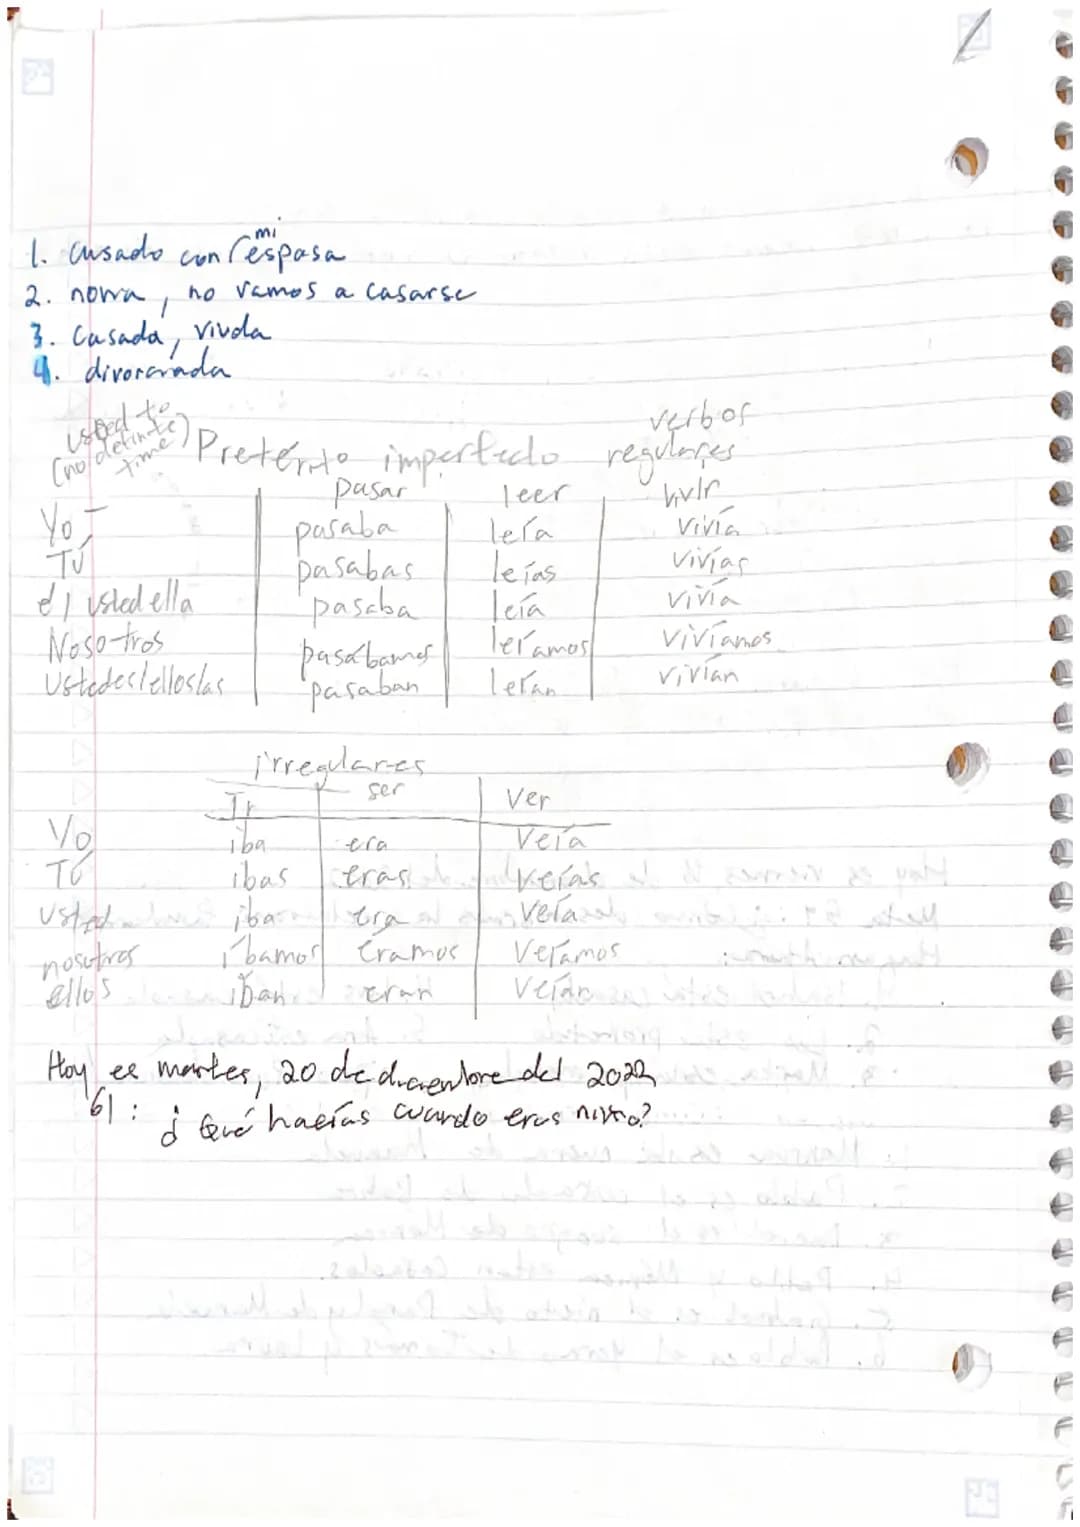 1. casado con mi esposa
2. novia, no vamos a casarse
3. Casada, viuda
4. divorciada
used to
(no definite time)
Pretérito imperfecto verbos regulares
pasar leer vivir
Yo pasaba leía vivía
Tú pasabas leías vivías
él usted ella pasaba leía vivía
Nosotros pasábamos leíamos vivíamos
Ustedes/ellos/as pasaban leían vivían
irregulares
Ir ser Ver
Yo iba era Veía
Tú ibas eras veías
Usted iba era veía
nosotros íbamos éramos Veíamos
ellos iban eran veían
Hoy es martes, 20 de diciembre del 2022
61: ¿Qué hacías cuando eras niño?